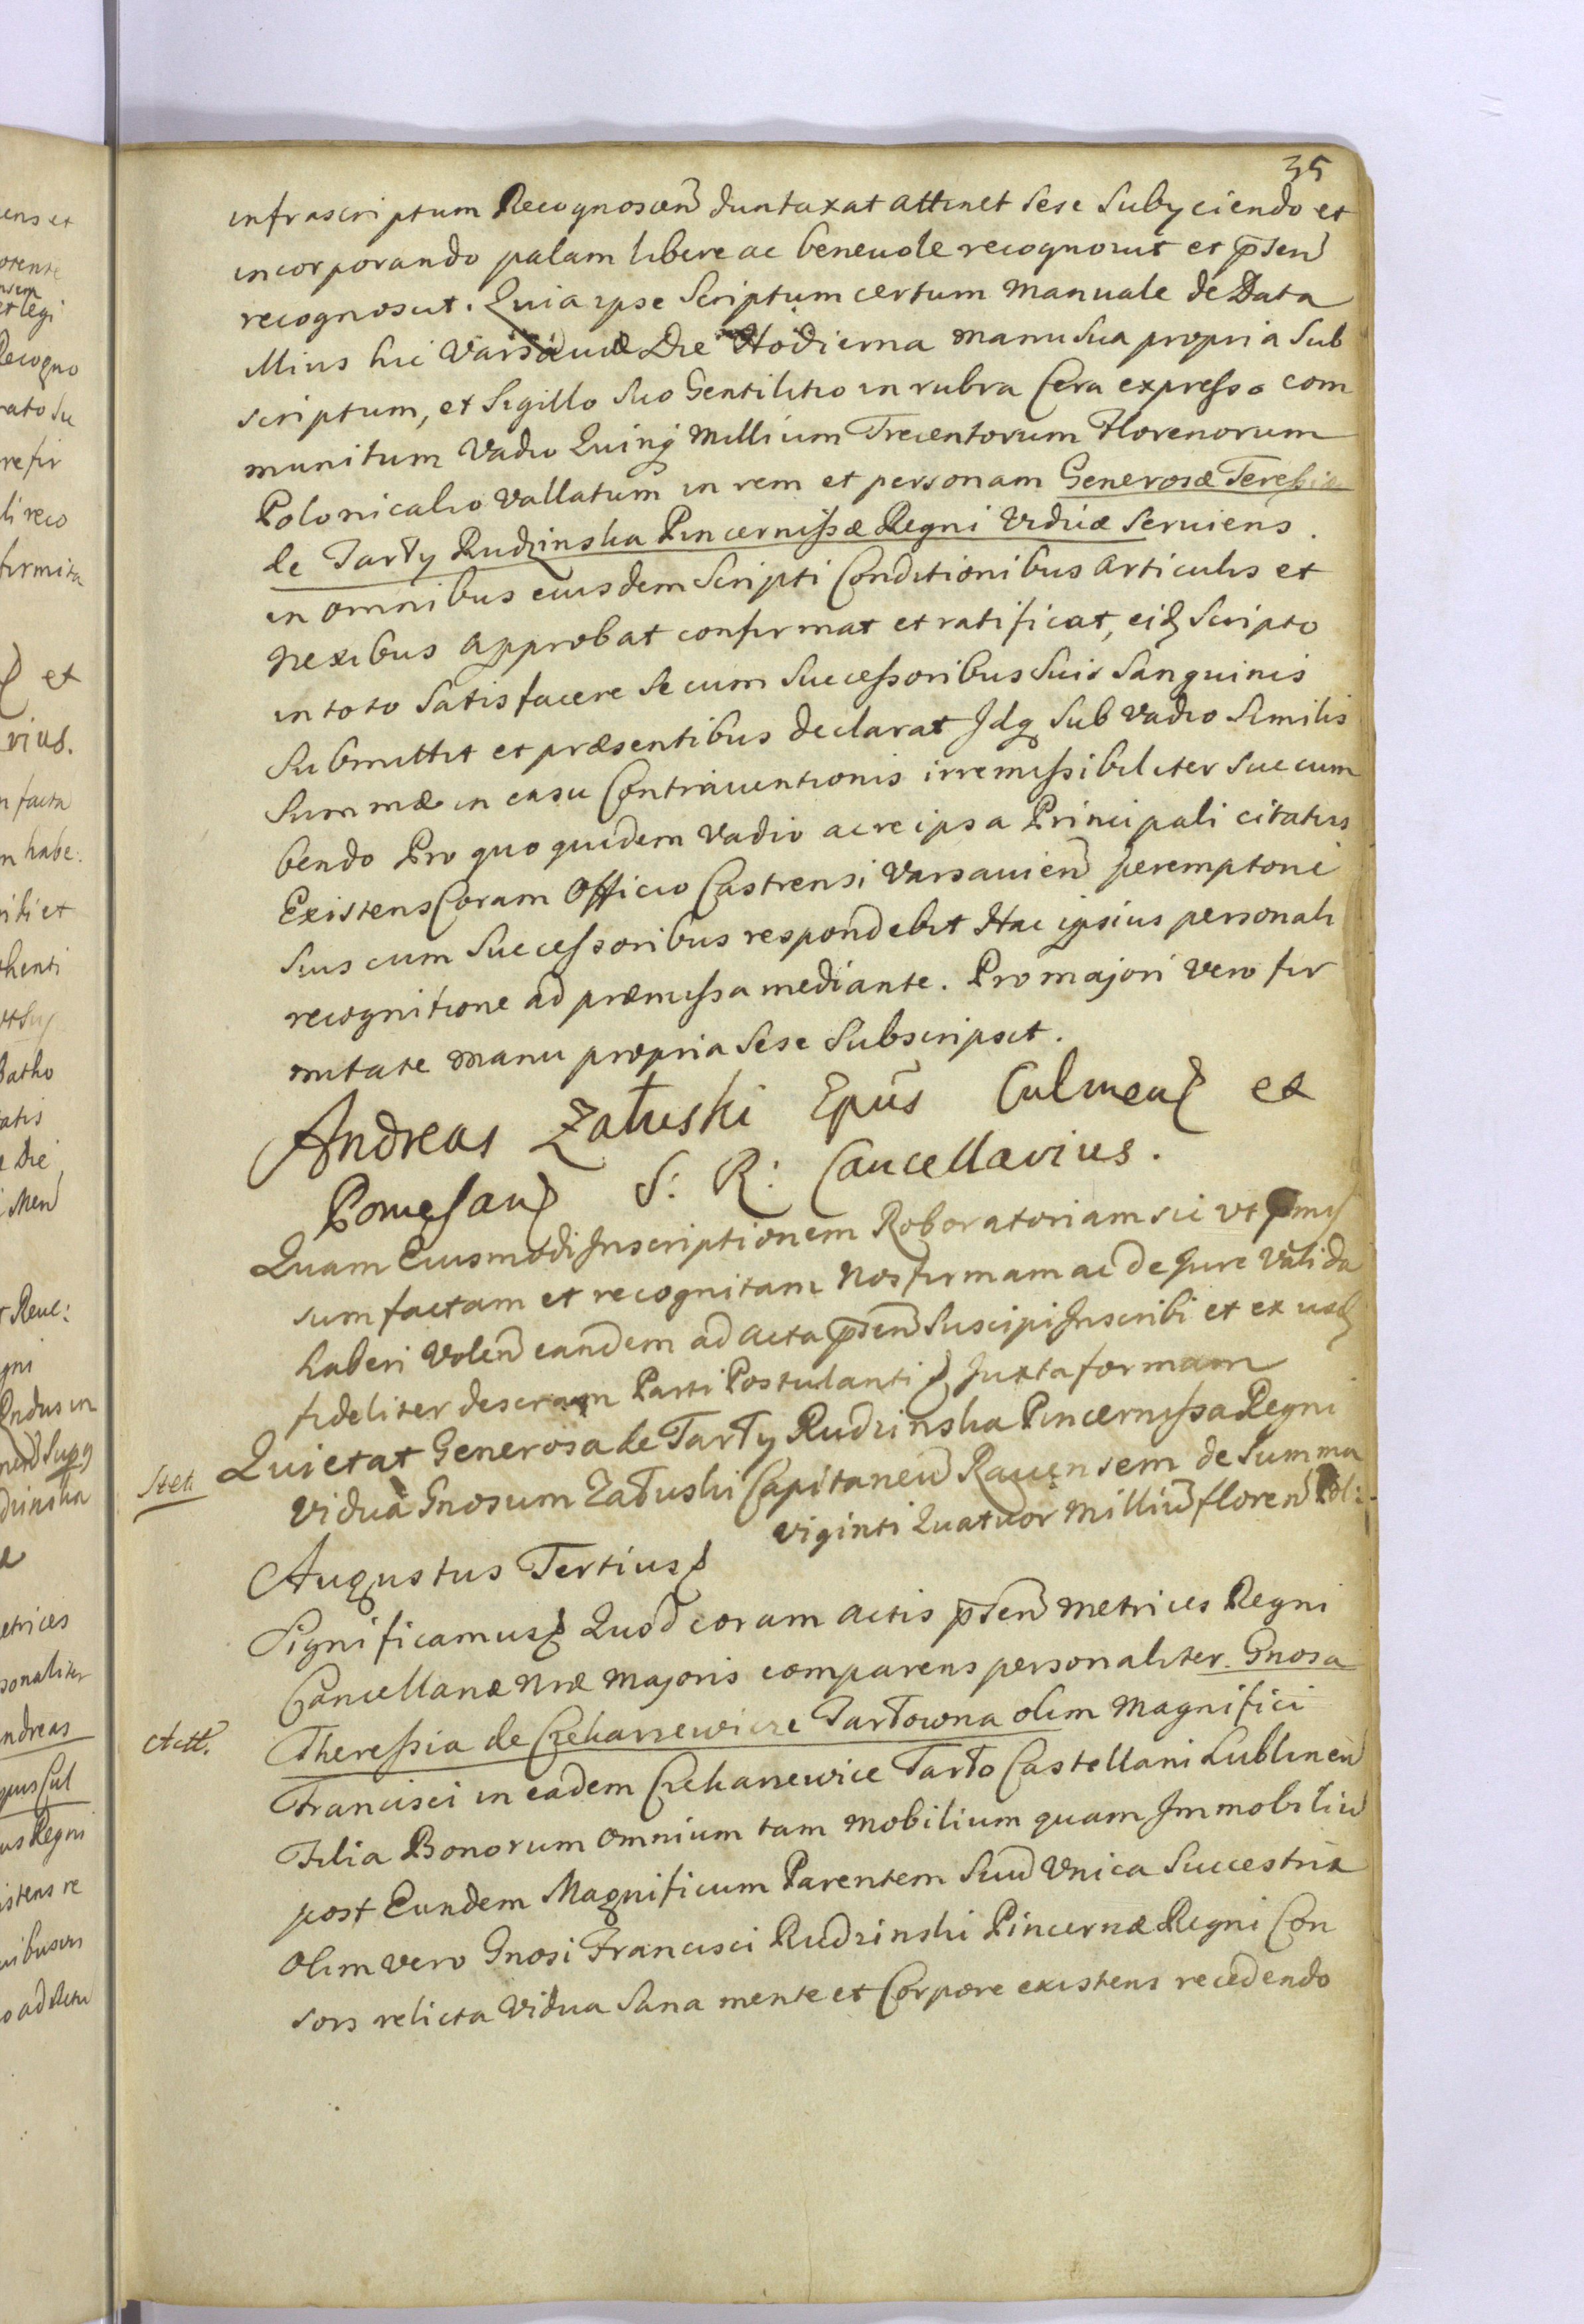 35
infrascriptum Recognoscen duntaxat attinet sese subyciendo et
incorporando palam libere ac beneuole recognouit et pñsen
recognoscit. Quia ipse Scriptum certum Manuale de Data
illius hic Varsauiæ Die Hodierna manu sua propria sub
scriptum, et Sigillo suo Gentilitio in rubra Cera expresso com
munitum Vadio Quinq Millium Trecentorum Florenorum
Polonicalio Vallatum in rem et personam Generosæ Teressiæ
de Tarły Rudzinska Pincernissæ Regni Viduæ seruiens
in omnibus eiusdem Scripti Conditionibus Articulis et
Nexibus Approbat confirmat et ratificat, eid Scripto
in toto satisfacere se cum Successoribus suis Sanguinis
submittit et præsentibus declarat Idq sub Vadio similis
summæ in casu Contrauentionis irremissibiliter succum
bendo Pro quo quidem Vadio ac re ipsa Principali citatus
Existens Coram Officio Castrensi Varsauien peremptorie
suis cum Successoribus respondebit Hac ipsius personali
recognitione ad præmissa mediante. Pro majori Vero fir
mitate manu propria sese subscripsit.
Andreas Załuski Epūs Culmen et
Pomesan S: R: Cancellarius.
Quam Eiusmodi Inscriptionem Roboratoriam sic vt pmis
sum factam et recognitam Nos firmam ac de Jure Valida
haberi Volen eandem ad Acta pñsen Suscipi Inscribi et ex usd
fideliter descram Parti Postulanti Juxta formam
Stet.
Quietat Generosa de Tarły Rudzinska Pincernissa Regni
Vidua Gnosum Załuski Capitaneu Rauensem de summa
Viginti Quatuor Milliu floren Pol:
Augustus Tertius
Significamus Quod coram actis pñsen Metrices Regni
Cancellariæ Nræ Majoris comparens personaliter Gnosa
Act.
Theressia de Czekarzewice Tarłowna olim Magnifici
Francisci in eadem Czekarzewice Tarło Castellani Lublinen
Filia Bonorum Omnium tam Mobilium quam Immobiliu
post Eundem Magnificum Parentem Suu Vnica Successtrix
Olim vero Gnosi Francisci Rudzinski Pincernæ Regni Con
sors relicta Vidua Sana mente et Corpore existens recedendo